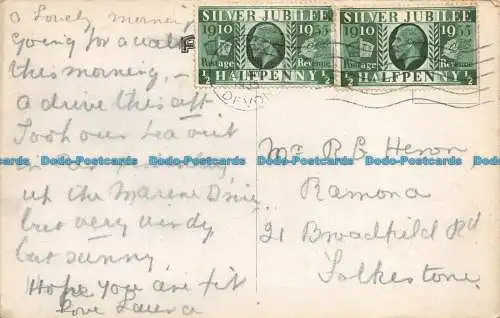 A Lovely morning
Going for a walk
this morning, –
a drive this aft
Took our tea out
in
up the Marine Drive
but very windy
but sunny
Hope you are fit
Love
SILVER JUBILEE
1910 1935
Postage Revenue
½ HALFPENNY ½
SILVER JUBILEE
1910 1935
Postage Revenue
½ HALFPENNY ½
DEVON
Mr R B Heron
Ramona
21 Broadfield Rd
Folkestone
Delcampe
Bobo-Postcards Bobo-Postcards Bobo-Postcards Bobo-Postcards Bobo-Postcards